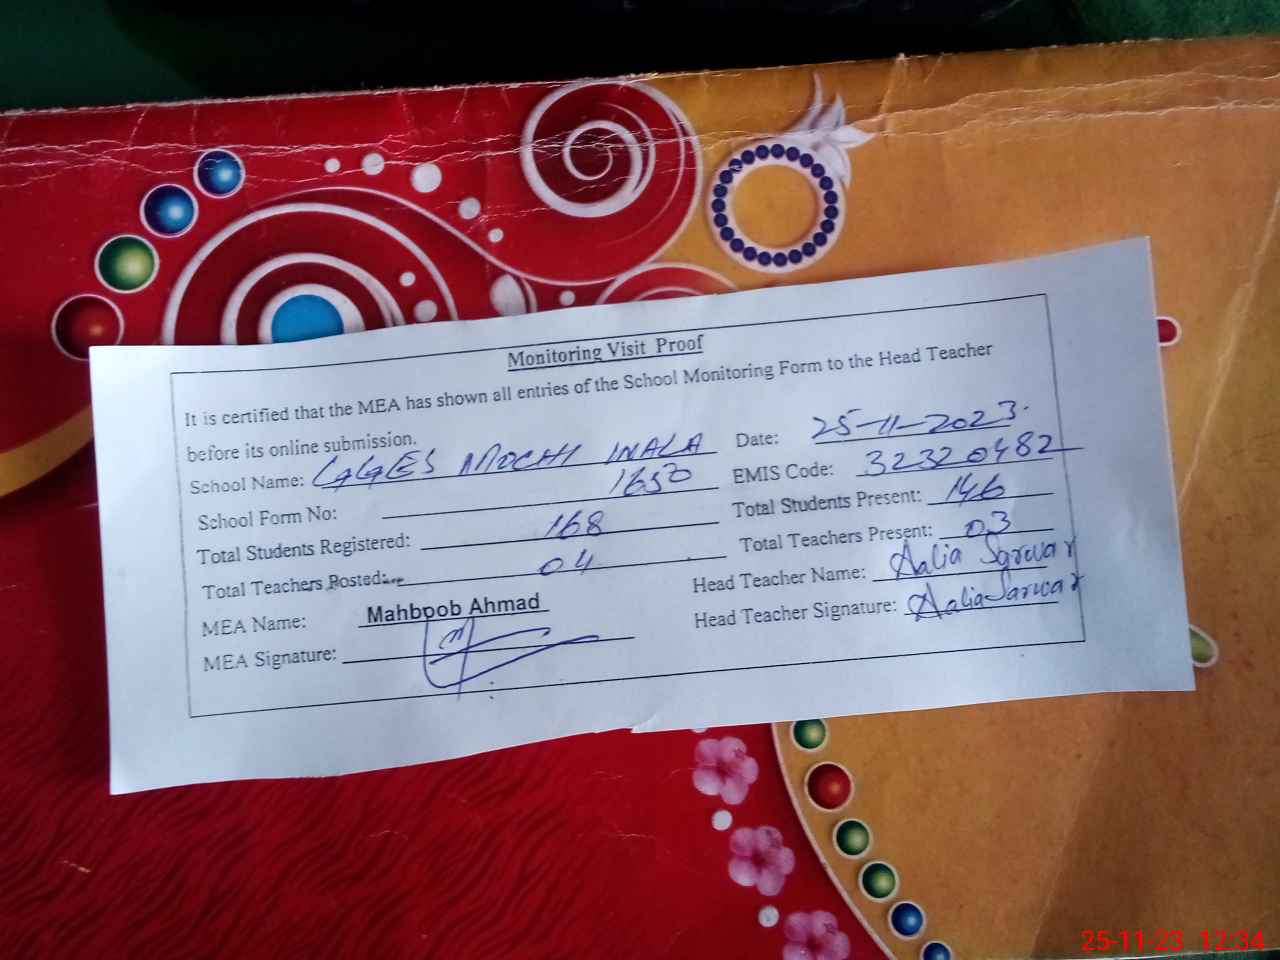 Monitoring Visit Proof
It is certified that the MEA has shown all entries of the School Monitoring Form to the Head Teacher
before its online submission.
School Name: GGES MOCHI WALA Date: 25-11-2023.
School Form No: 1650 EMIS Code: 32320482
Total Students Registered: 168 Total Students Present: 146
Total Teachers Posted: 04 Total Teachers Present: 03
MEA Name: Mahboob Ahmad Head Teacher Name: Aalia Sarwar
MEA Signature: Head Teacher Signature: Aalia Sarwar
25-11-23 12:34